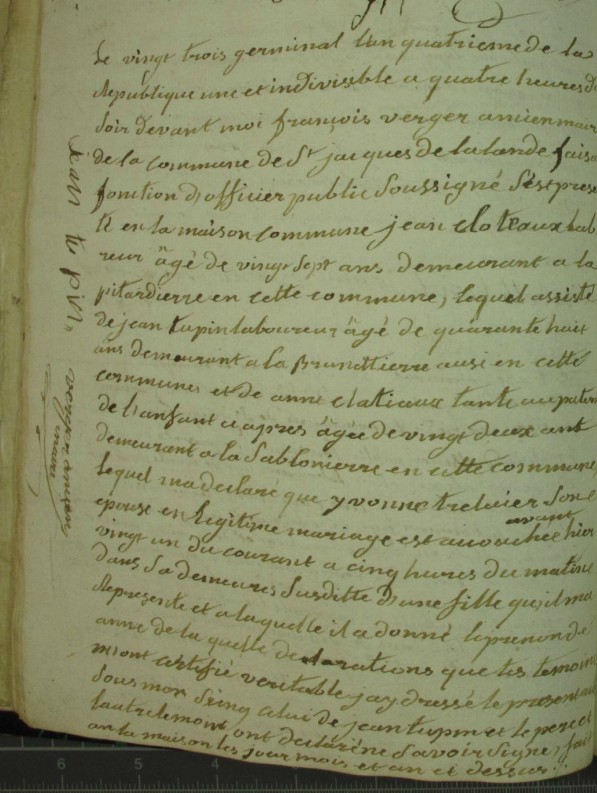 Le vingt trois germinal l'an quatrieme de la
Republique une et indivisible a quatre heures du
Soir devant moi françois verger ancien maire
de la commune de St jacques de la lande faisa
fonction d'officier public Soussigné S'est prese
té en la maison commune jean cloteaux lab
reur âgé de vingt Sept ans demeurant a la
pitardierre en cette commune, lequel assisté
de jean tupin laboureur âgé de quarante huit
ans demeurant a la Brunettierre ausi en cette
commune et de anne clatiaux tante au patern
de l'anfant cy apres âgée de vingt deux ant
demeurant a la Sablonierre en cette commune,
lequel ma declaré que yvonne treluier Son
epouse en legitime mariage est acouchée avant hier
vingt un du courant a cinq hures du matin
dans Sa demeures Susditte d'une fille qu'il ma
Represente et a laquelle il a donné le prenon de
anne de la quelle declarations que les temoins
m'ont certifié veritable j'ay dressé le present
Sous mon Seing celui de jean tupin et le pere et
lautre temoint ont declaré ne Savoir Signe, fait
an la maison les jour mois et an et dessus
jean tu pin
verger ancien
maire